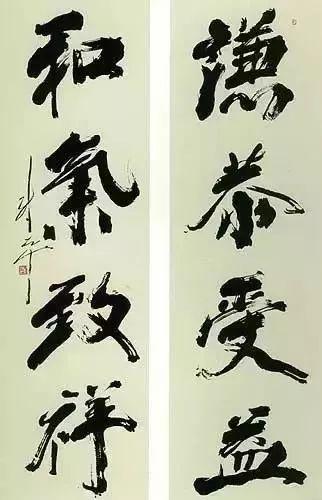 谦恭受益
和氣致祥